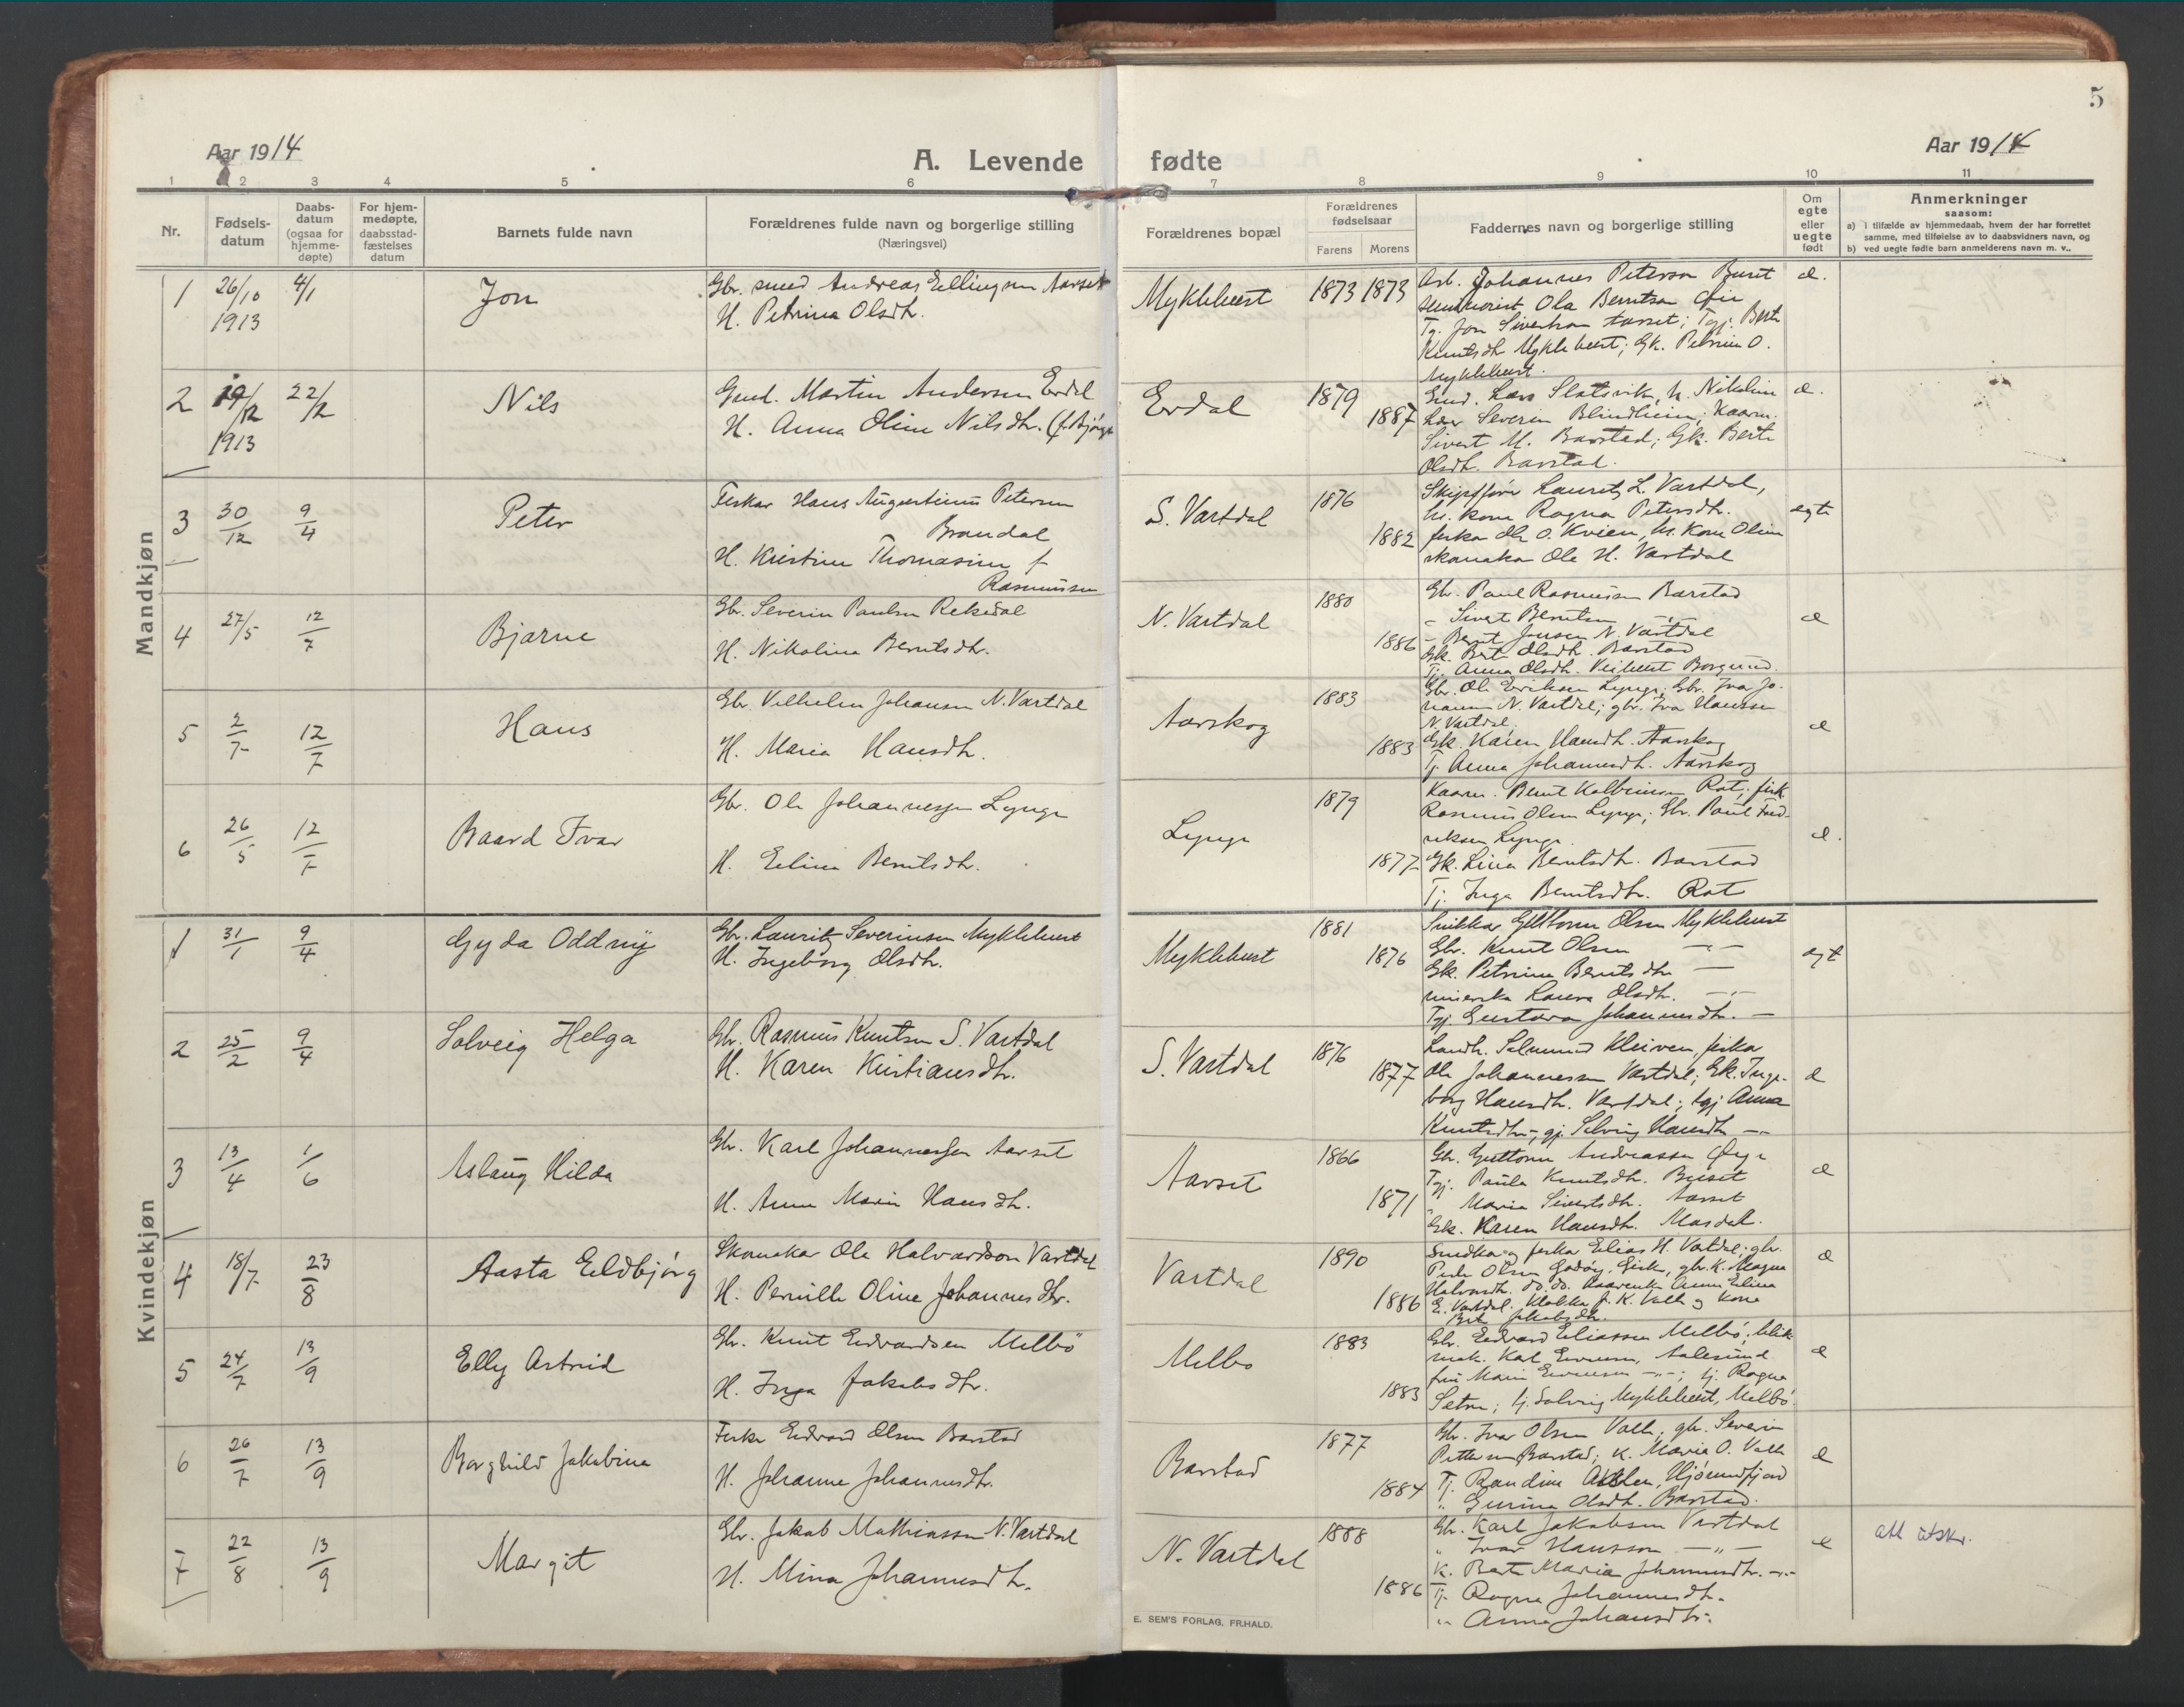 5
Aar 1914
A. Levende fødte
Aar 1914
1 2 3 4 5 6 7 8 9 10 11
Nr.
Fødsels-
datum
Daabs-
datum
(ogsaa for
hjemme-
døpte)
For hjem-
medøpte,
daabsstad-
fæstelses
datum
Barnets fulde navn
Forældrenes fulde navn og borgerlige stilling
(Næringsvei)
Forældrenes bopæl
Forældrenes
fødselsaar
Farens Morens
Faddernes navn og borgerlige stilling
Om
egte
eller
uegte
født
Anmerkninger
saasom:
a) i tilfælde av hjemmedaab, hvem der har forrettet
samme, med tilføielse av to daabsvidners navn, og
b) ved uegte fødte barn anmelderens navn m. v..
Mandkjøn
1 26/10 1913 4/1 Jon
Gbr. smed Andreas Ellingsen Aarset
H. Petrina Olsdt.
Myklebust 1873 1873
Arb. Johannes Peterson Buset
Ola Berntsen
Tg. Jon Sivertson Aarset; Tgj. Berte
Knutsdt Myklebust; Gk. Petrine O.
Myklebust.
e.
2 19/12 1913 22/2 Nils
Gmd. Martin Andersen Erdal
H. Anna Oline Nilsdtr.
Erdal 1879 1887
Gmd. Lars Slatsvik, h. Nikoline
Lars Severin Blindheim; Kaarm.
Sivert M. Barstad; Gk. Berte
Olsdt. Barstad.
e.
3 30/12 9/4 Peter
Fisker Hans Augustinus Petersen
Brandal
H. Kristine Thomasine f
Rasmussen
S. Vartdal 1876 1882
Skipsfører Laurits L. Vartdal,
hs. kone Ragna Petersdt.
fisker Ole O. Kvien, hs. kone Oline
skomaker Ole H. Vartdal
egte
4 27/5 12/7 Bjarne
Gbr. Severin Paulsen Rekedal
H. Nikoline Berntsdtr.
N. Vartdal 1880 1886
Gbr. Paul Rasmussen Barstad
" Sivert Berntsen -"-
" Bernt Jonsen N. Vartdal
Gk. Berte Olsdt. Barstad
Tj. Anna Olsdt. Borgund.
e
5 2/7 12/7 Hans
Gbr. Vilhelm Johansen N. Vartdal
H. Maria Hansdtr.
Aarskog 1883 1883
Gbr. Ole Eriksen Lynge; Gbr. Ivar Jo-
hansen N. Vartdal; gbr. Iver Hanssen
N. Vartdal.
Gk. Karen Hansdt. Aarskog
Tj. Anna Johannesdt. Aarskog
e
6 26/5 12/7 Baard Ivar
Gbr. Ole Johannessen Lynge
H. Elina Berntsdtr.
Lynge 1879 1877
Kaarm. Bernt Kolbeinsen Rot; fisk.
Rasmus Olsen Lynge; Gbr. Paul Fred-
riksen Lynge
Gk. Lina Berntsdt. Barstad
Tj. Inga Berntsdt. Rot
e.
Kvindekjøn
1 31/1 9/4 Gyda Oddny
Gbr. Laurits Severinsen Myklebust
H. Ingeborg Olsdt.
Myklebust 1881 1876
Snikkar Guttorm Olsen Myklebust
Gbr. Knut Olsen -"-
Gk. Petrine Berntsdtr -
Laura Olsdt. -"-
Tgj. Gustava Johannesdt. -
egt
2 25/2 9/4 Solveig Helga
Gbr. Rasmus Knutsen S. Vartdal
H. Karen Kristiansdt.
S. Vartdal 1876 1877
Landh. Salmund Kleiven, fisker
Ole Johannessen Vartdal; Gk. Inge-
borg Hansdt. Vartdal; tgj Anna
Knutsdtr -, gj. Solveig Hansdt -"-
e
3 13/4 1/6 Aslaug Hilda
Gbr. Karl Johannessen Aarset
H. Anne Marie Hansdt.
Aarset 1866 1871
Gbr. Guttorm Andreassen Øye
Tgj. Paula Knutsdt. Buset
" Maria Sivertsdt. Aarset
Gk. Karen Hansdt. Masdal.
e
4 18/7 23/8 Aasta Eldbjørg
Skomaker Ole Halvardson Vartdal
H. Pernille Oline Johannesdtr.
Vartdal 1890 1886
fisker Elias H. Vartdal; gbr.
Peder Olsen Godøy, Giske, gbr.k. Magna
Halvardt. do. do. Anne Elina
E. Vartdal. Klokker J. K. Valle og kone
Berte Jakobsdt.
e
5 24/7 13/9 Elly Astrid
Gbr. Knut Edvardsen Melbö
H. Inga Jakobsdtr.
Melbø 1883 1883
Gbr. Edvard Eliassen Melbö; blik-
mak. Karl Aalesund
fru Marie -"-; tj. Ragna
Sætre; tj. Solveig Myklebust, Melbö.
e
6 26/7 13/9 Borghild Jakobine
Fisker Edvard Olsen Barstad
H. Johanne Johannesdtr.
Barstad 1877 1884
Gbr. Ivar Olsen Valle; gbr. Severin
Pettersen Barstad; K. Maria O. Valle
Tj. Randine Hjørundfjord
" Gurine Olsdt. Barstad.
e
7 22/8 13/9 Margit
Gbr. Jakob Mathiassen N. Vartdal
H. Mina Johannesdt.
N. Vartdal 1888 1886
Gbr. Karl Jakobsen Vartdal
" Ivar Hansson -"-
K. Berte Maria Johannesdtr. -"-
Tj. Ragna Johannesdt.
" Anna Johansdtr.
e
att utskr.
E. SEM'S FORLAG, FR.HALD.